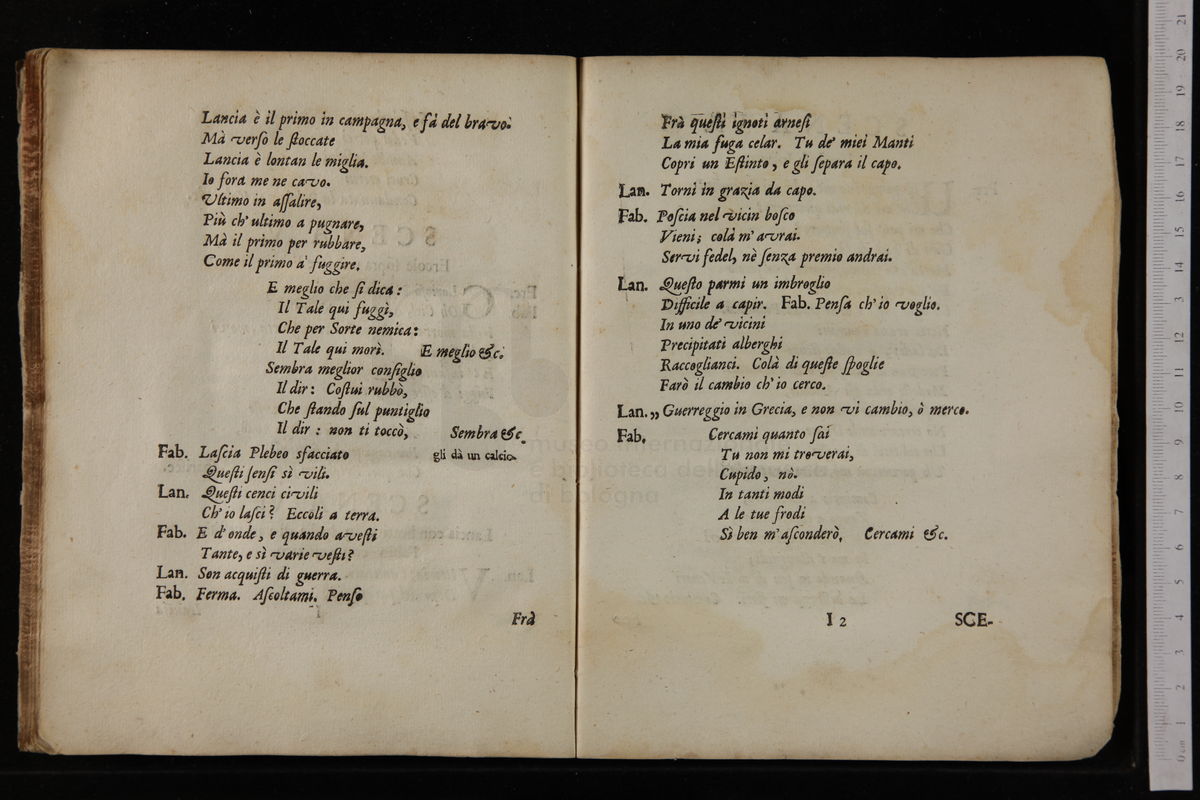 Lancia è il primo in campagna, e fà del bravo.
Mà verſo le ſtoccate
Lancia è lontan le miglia.
Io fora me ne cavo.
Ultimo in aſſalire,
Più ch' ultimo a pugnare,
Mà il primo per rubbare,
Come il primo a' fuggire.
E meglio che ſi dica :
Il Tale qui fuggì,
Che per Sorte nemica :
Il Tale qui morì. E meglio &c.
Sembra meglior conſiglio
Il dir : Coſtui rubbò,
Che ſtando ſul puntiglio
Il dir : non ti toccò, Sembra &c.
Fab. Laſcia Plebeo sfacciato gli dà un calcio.
Queſti ſenſi sì vili.
Lan. Queſti cenci civili
Ch' io laſci ? Eccoli a terra.
Fab. E d'onde, e quando aveſti
Tante, e sì varie veſti ?
Lan. Son acquiſti di guerra.
Fab. Ferma. Aſcoltami. Penſo
Frà
Frà queſti ignoti arneſi
La mia fuga celar. Tu de' miei Manti
Copri un Eſtinto, e gli ſepara il capo.
Lan. Torni in grazia da capo.
Fab. Poſcia nel vicin boſco
Vieni ; colà m' avrai.
Servi fedel, nè ſenza premio andrai.
Lan. Queſto parmi un imbroglio
Difficile a capir. Fab. Penſa ch' io voglio.
In uno de' vicini
Precipitati alberghi
Raccoglianci. Colà di queſte ſpoglie
Farò il cambio ch' io cerco.
Lan. ,, Guerreggio in Grecia, e non vi cambio, ò merco.
Fab. Cercami quanto ſai
Tu non mi troverai,
Cupido, nò.
In tanti modi
A le tue frodi
Sì ben m' aſconderò, Cercami &c.
I 2 SCE-